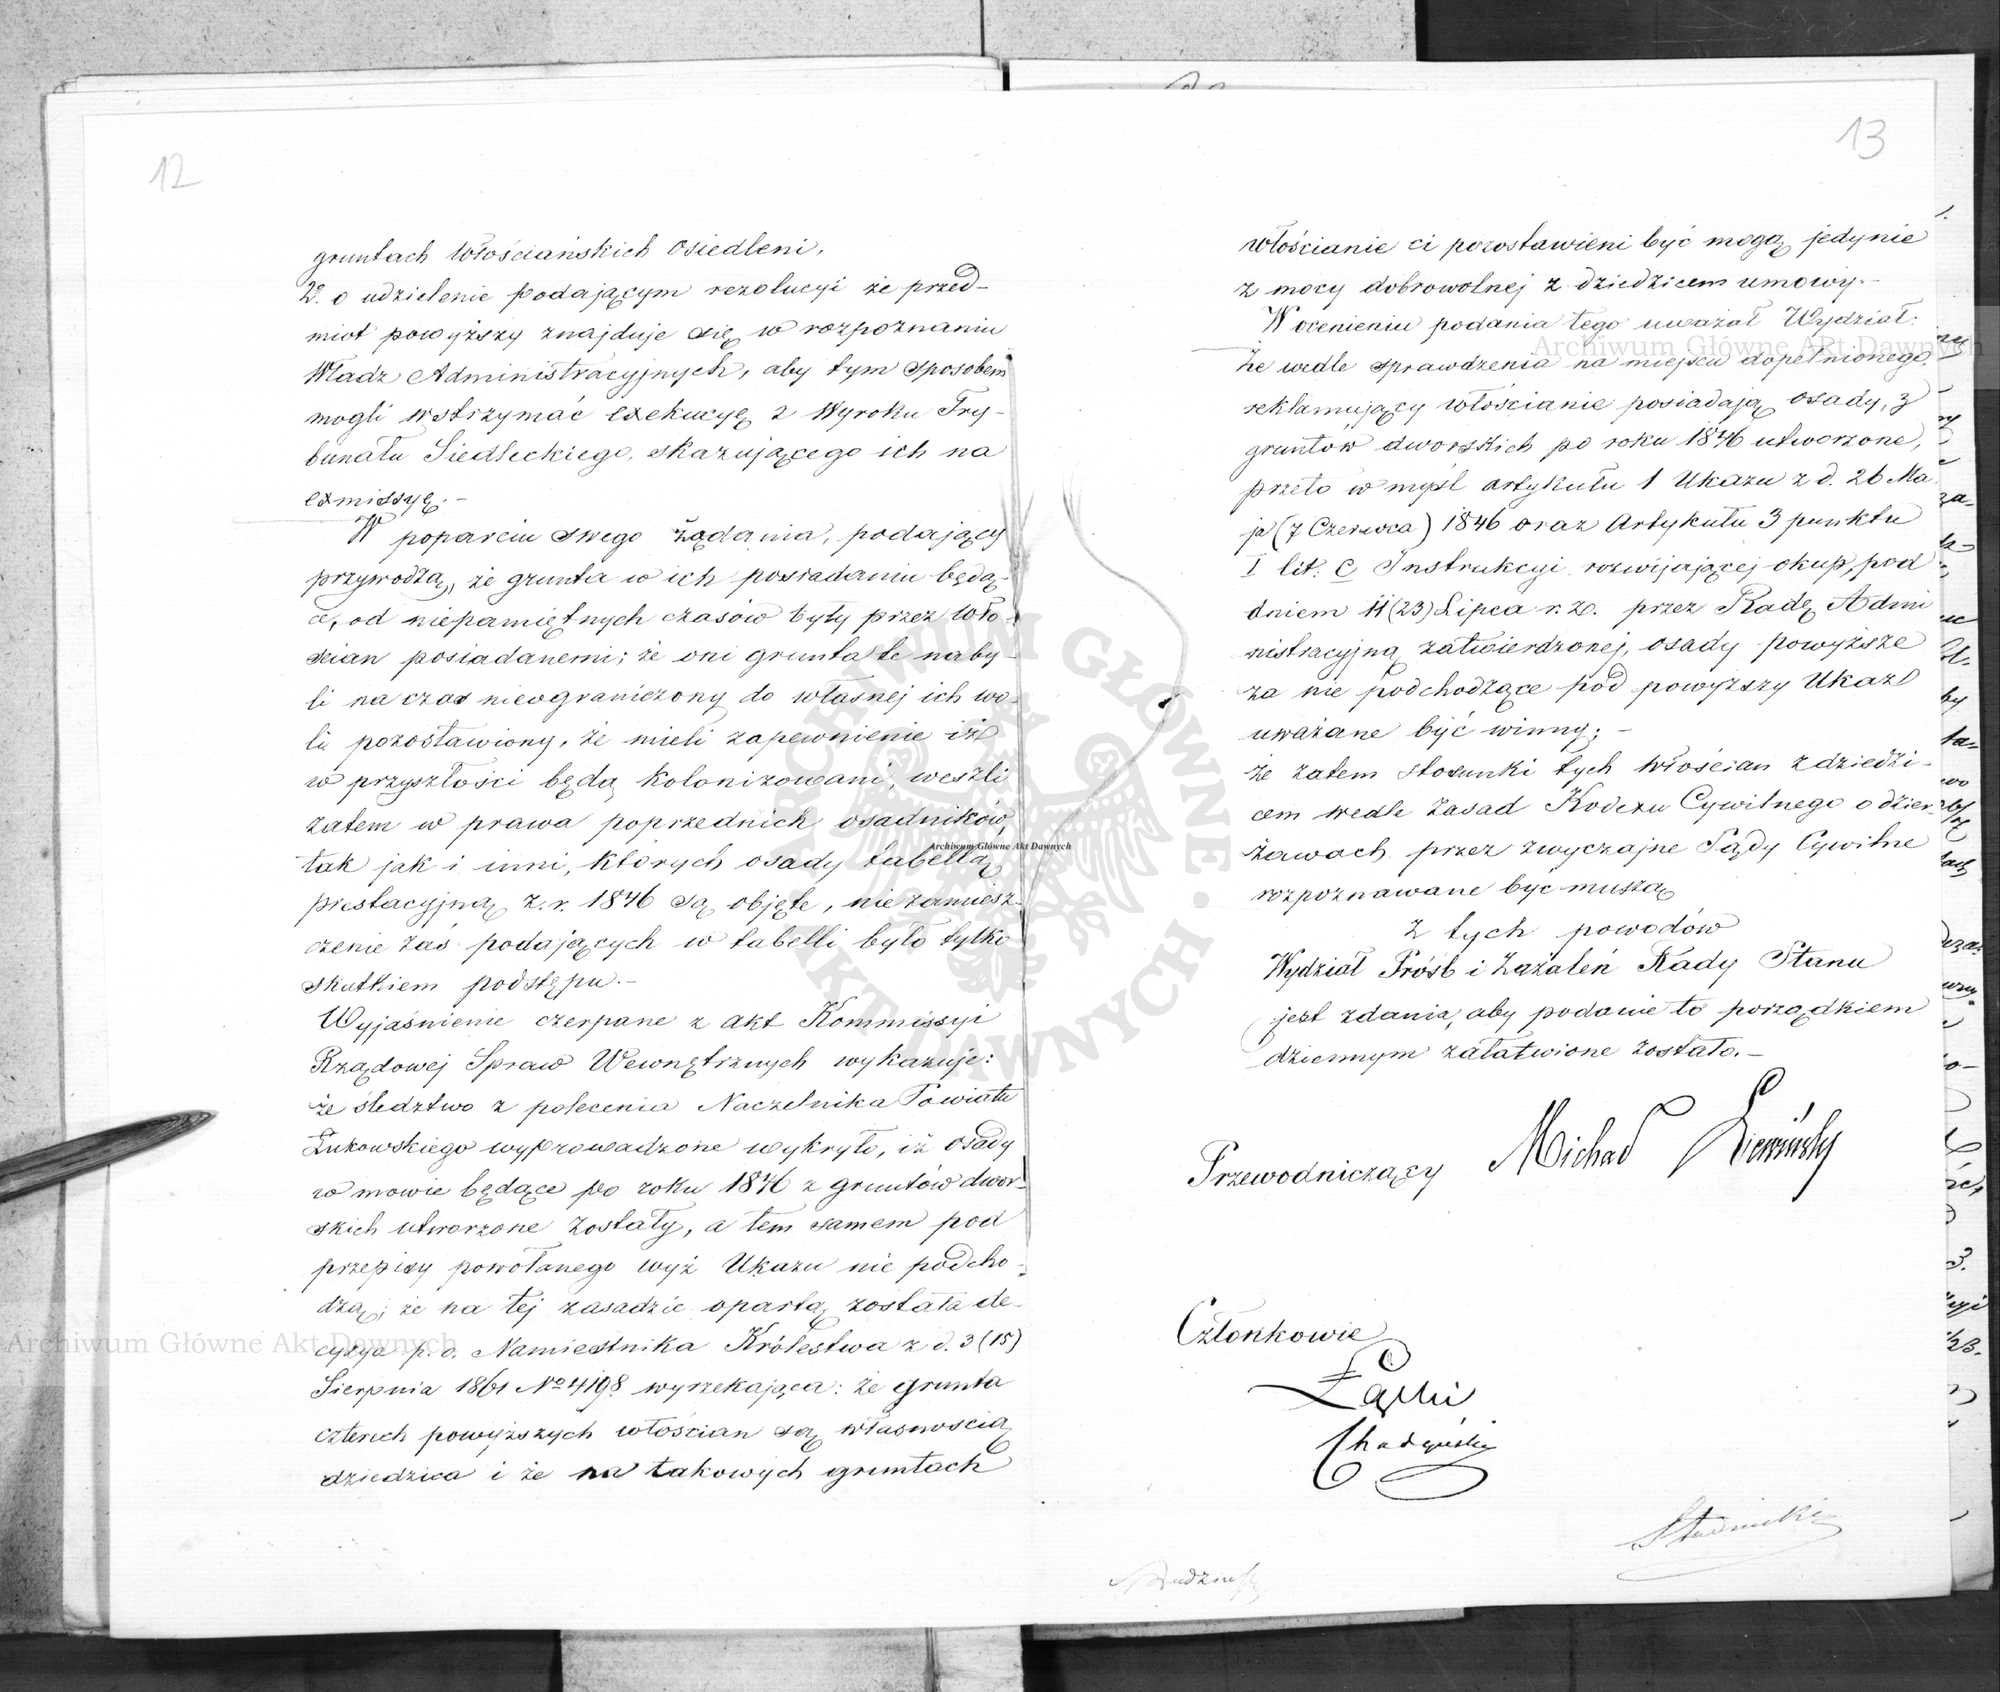 12
gruntach włościańskich osiedleni.
2o. o udzielenie podającym rezolucyi że przed-
miot powyższy znajduje się w rozpoznaniu
Władz Administracyjnych, aby tym sposobem
mogli wstrzymać exekucyę z Wyroku Try-
bunału Siedleckiego, skazującego ich na
exmissyę.-
W poparciu swego żądania, podający
przywodzą, że grunta w ich posiadaniu będą-
ce, od niepamiętnych czasów były przez wło-
ścian posiadanemi; że oni grunta te naby-
li na czas nieograniczony do własnej ich wo-
li pozostawiony, że mieli zapewnienie iż
w przyszłości będą kolonizowani, weszli
zatem w prawa poprzednich osadników,
tak jak i inni, których osady tabellą
prestacyjną z. r. 1846 są objęte, nie zamiesz-
czenie zaś podających w tabelli było tylko
skutkiem podstępu.-
Wyjaśnienie czerpane z akt Kommissyi
Rządowej Spraw Wewnętrznych wykazuje:
że śledztwo z polecenia Naczelnika Powiatu
Łukowskiego wyprowadzone wykryło, iż osady
w mowie będące po roku 1846 z gruntów dwor-
skich utworzone zostały, a tem samem pod
przepisy powołanego wyż Ukazu nie podcho-
dzą; że na tej zasadzie opartą została de-
cyzya p. o. Namiestnika Królestwa z d. 3 (15)
Sierpnia 1861 No 4198 wyrzekająca: że grunta
czterech powyższych włościan są własnością
dziedzica i że na takowych gruntach
13
włościanie ci pozostawieni być mogą jedynie
z mocy dobrowolnej z dziedzicem umowy.-
W ocenieniu podania tego uważał Wydział:
że wedle sprawdzenia na miejscu dopełnionego,
reklamujący włościanie posiadają osady, z
gruntów dworskich po roku 1846 utworzone,
przeto w myśl artykułu 1 Ukazu z d. 26 Ma-
ja (7 Czerwca) 1846 oraz Artykułu 3 punktu
I lit: C Instrukcyi rozwijającej okup, pod
dniem 11 (23) Lipca r. z. przez Radę Admi
nistracyjną zatwierdzonej, osady powyższe
za nie podchodzące pod powyższy Ukaz
uważane być winny; -
że zatem stosunki tych włościan z dziedzi-
cem wedle zasad Kodexu Cywilnego o dzier-
żawach przez zwyczajne Sądy Cywilne
rozpoznawane być muszą
Z tych powodów
Wydział Próśb i Zażaleń Rady Stanu
jest zdania, aby podanie to porządkiem
dziennym załatwione zostało.-
Przewodniczący Michał
Członkowie
Łącki
Archiwum Główne Akt Dawnych
Archiwum Główne Akt Dawnych
Archiwum Główne Akt Dawnych
ARCHIWUM GŁÓWNE AKT DAWNYCH